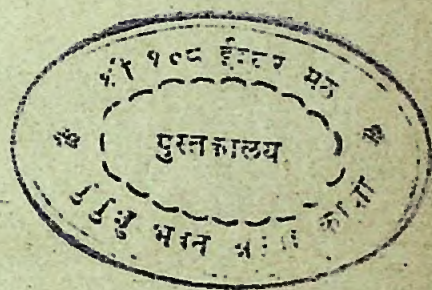 श्री १०८ मठ
पुस्तकालय
मुमुक्षु भवन काशी